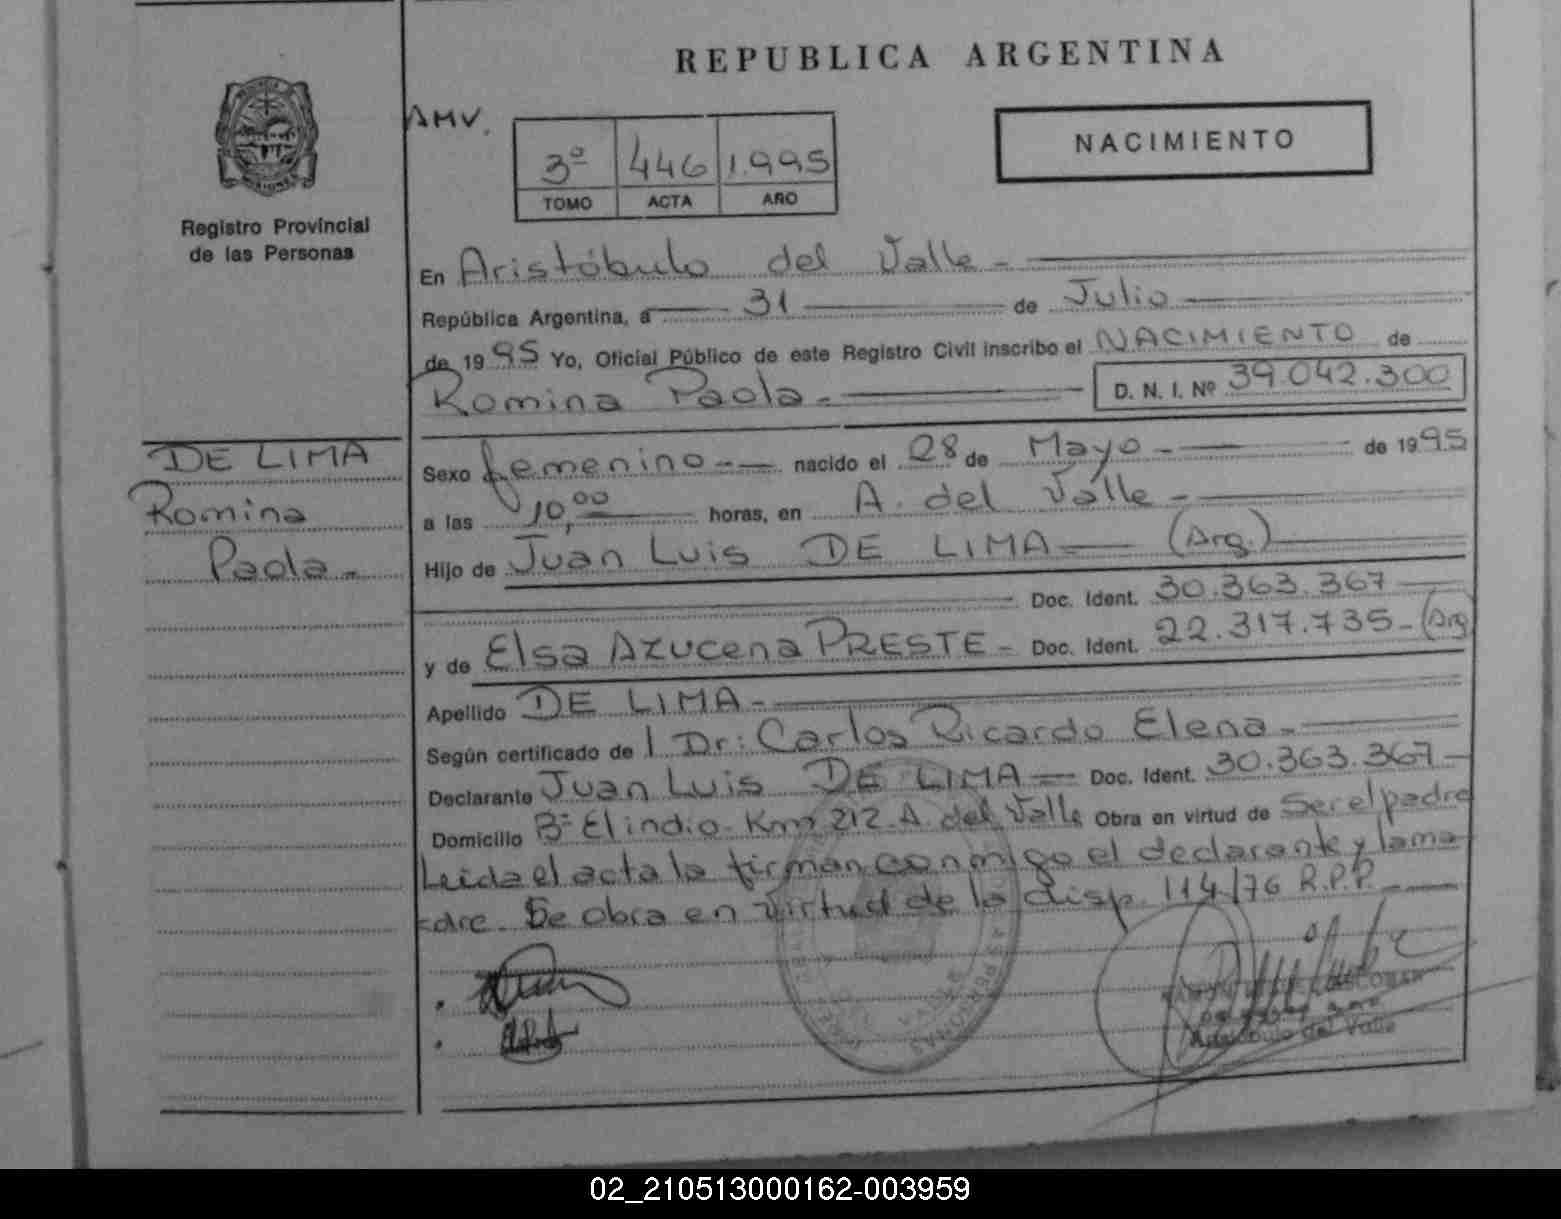 REPUBLICA ARGENTINA
AMV.
3º 446 1.995
TOMO ACTA AÑO
NACIMIENTO
Registro Provincial
de las Personas
En Aristóbulo del Valle -
República Argentina, a 31 de Julio
de 1995 Yo, Oficial Público de este Registro Civil inscribo el NACIMIENTO de
Romina Paola - D. N. I. Nº 39.042.300
DE LIMA
Romina
Paola -
Sexo femenino - nacido el 28 de Mayo - de 1995
a las 10,00 horas, en A. del Valle -
Hijo de Juan Luis DE LIMA (Arg.)
Doc. Ident. 30.363.367
y de Elsa Azucena PRESTE - Doc. Ident. 22.317.735 - (Arg)
Apellido DE LIMA -
Según certificado de Dr: Carlos Ricardo Elena -
Declarante Juan Luis DE LIMA Doc. Ident. 30.363.367 -
Domicilio Bº El indio - Km 212 - A. del Valle Obra en virtud de Ser el padre
Leida el acta la firman conmigo el declarante y la ma
dre - Se obra en virtud de la disp. 114/76 R.P.P. -
PERSONAS
Aristóbulo del Valle
02_210513000162-003959